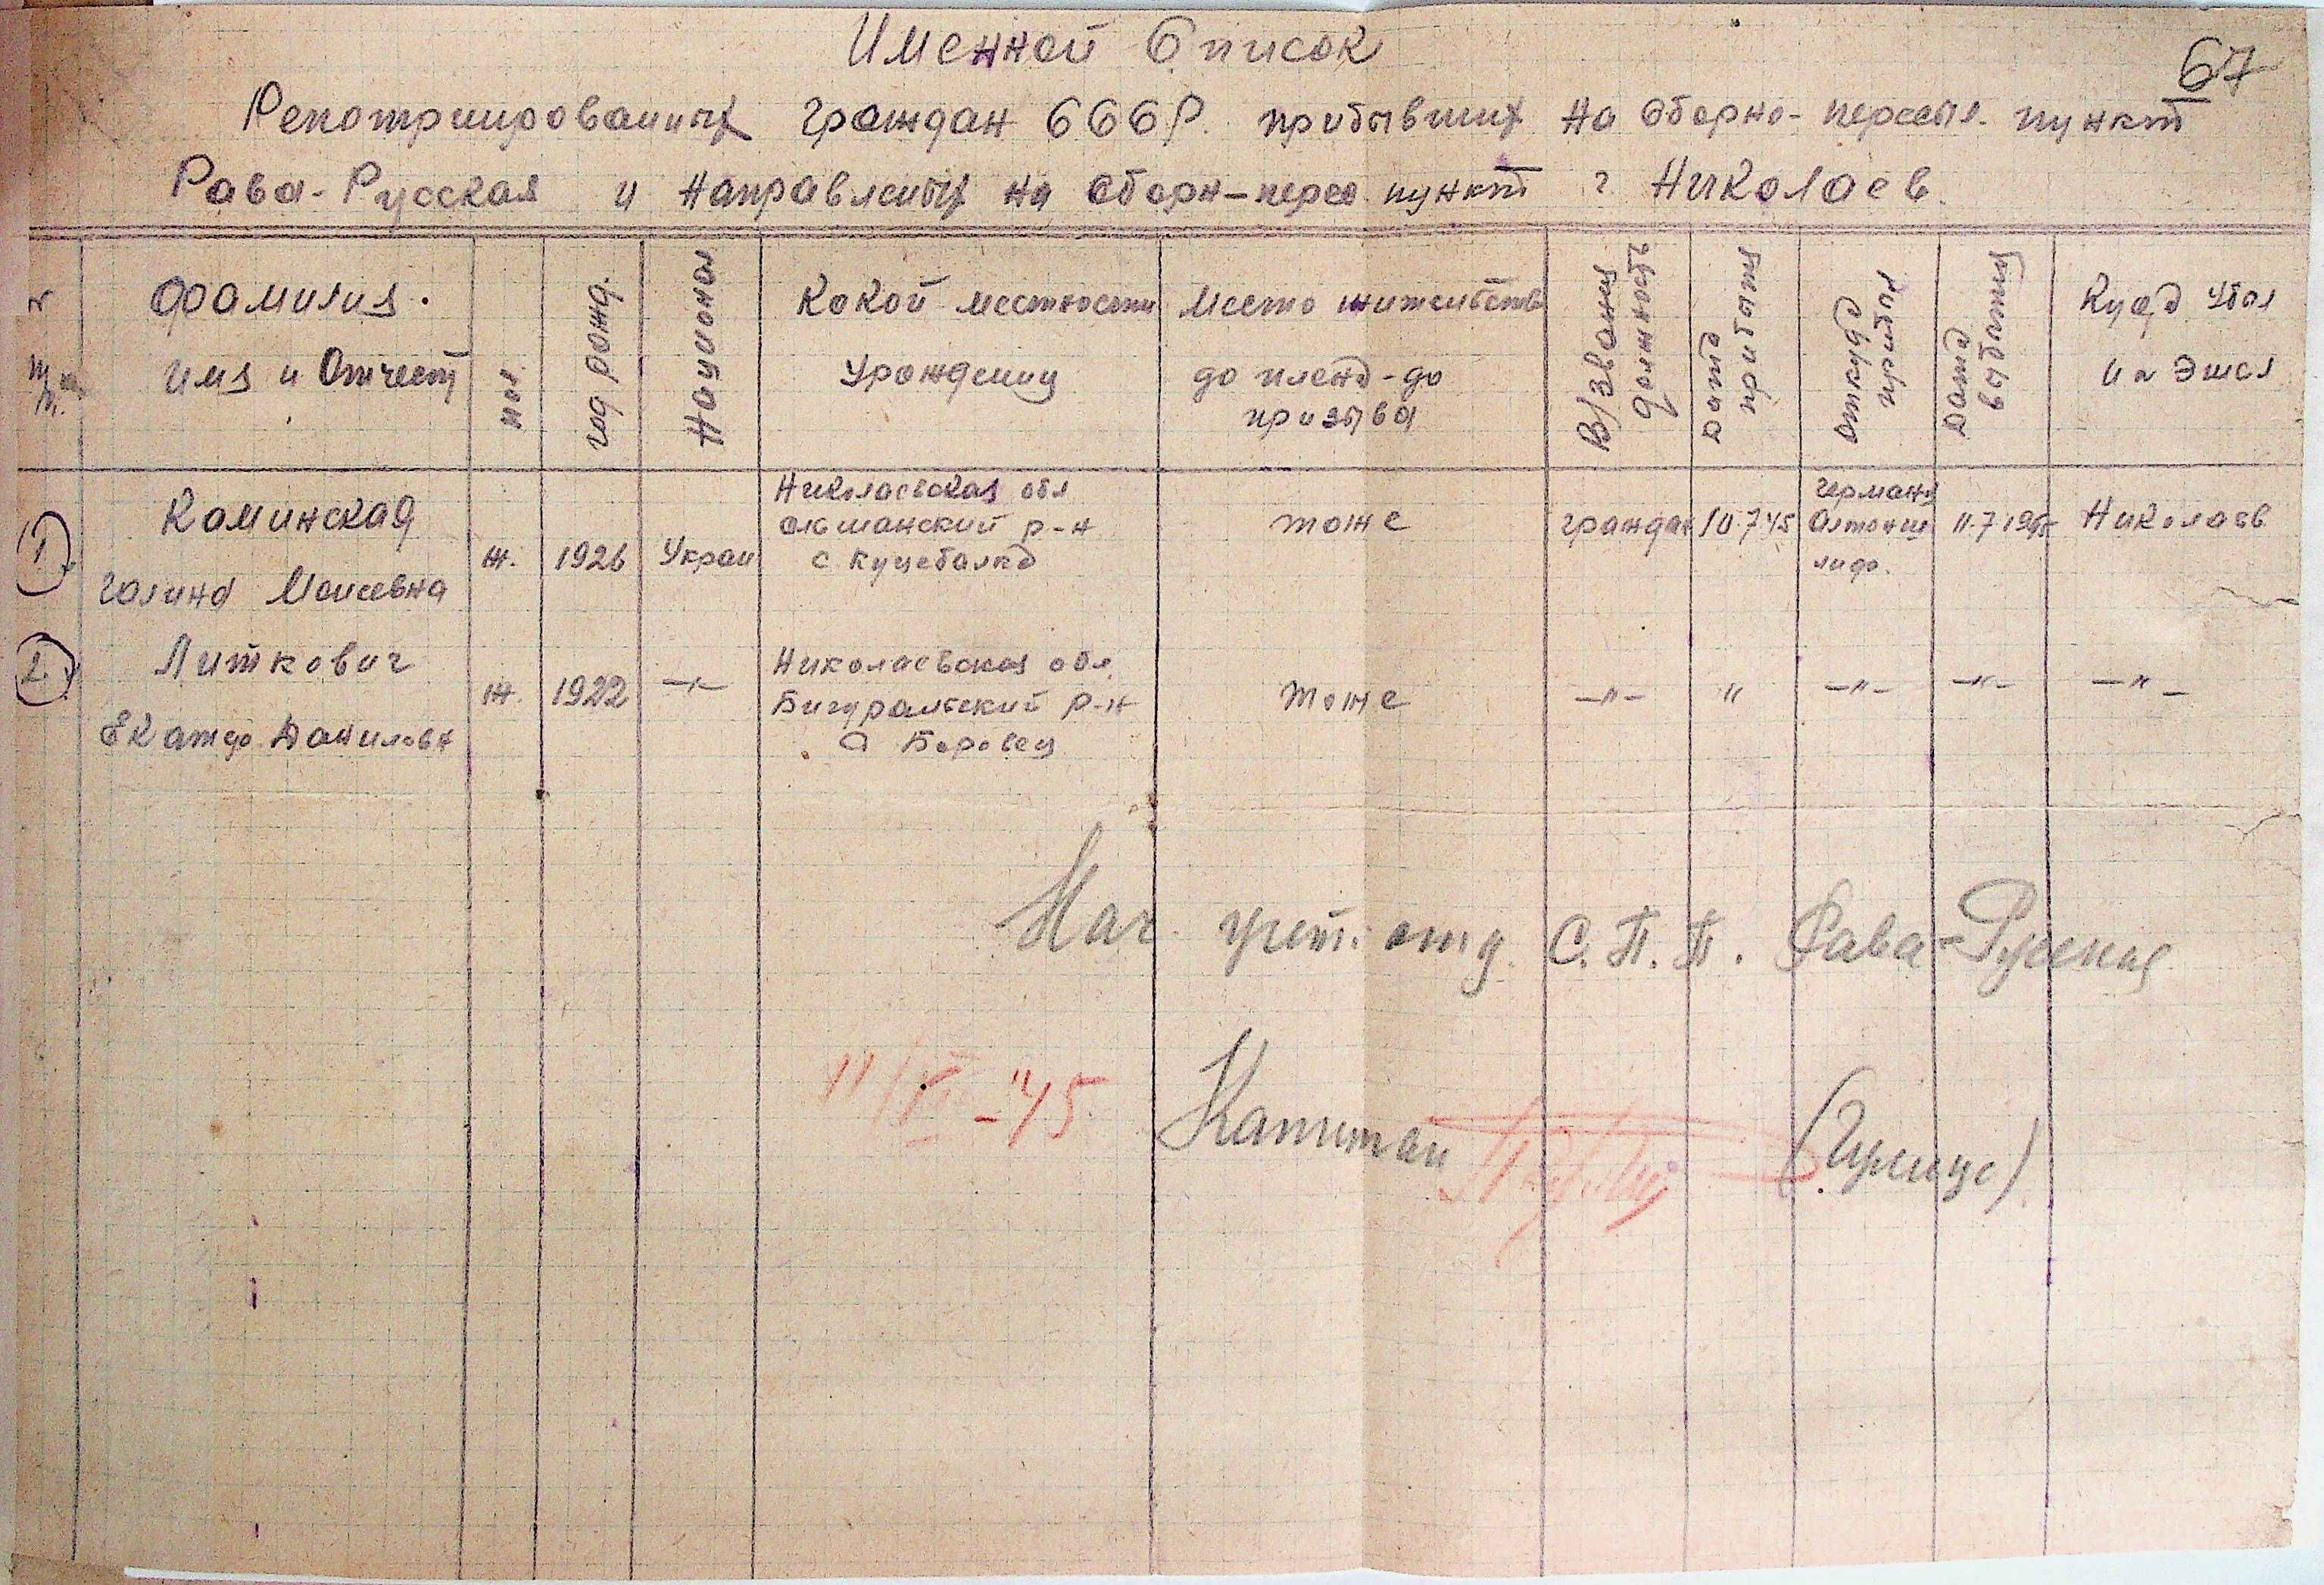 67
Именной Список
Репатриированных Граждан СССР. прибывших на сборно-пересыл. пункт
Рава-Русская и направлены на сборн-перес. пункт г Николаев.
Фамилия.
имя и Отчест
пол
год рожд.
Национал
Какой местности
Урожденец
Место жительства
до плена-до
призыва
В/звание
должность
Дата
прибытия
Откуда
прибыл
Дата
выбытия
Куда убыл
и № Эшел
1
Каминская
Галина Моисевна
ж.
1926
Украи
Николаевская обл
ольшанский р-н
с Куцебалка
тоже
граждан
10.7.45
Германя
11.7.1945
Николаев
2.
Литкович
Екатер Данилов
ж.
1922
-"-
Николаевская обл.
р-н
тоже
-"-
"
-"-
-"-
-"-
Нач. учет. отд. С.П.П. Рава-Русская
11/VII-45
Капитан